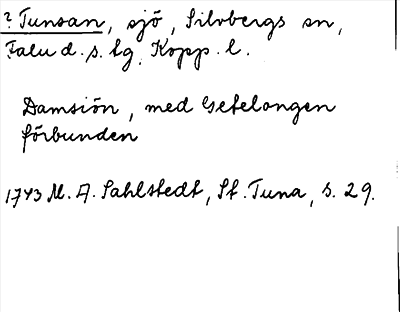 ? Tunsan, sjö, Silvbergs sn,
Falu d. s. lg. Kopp. l.
Damsiön, med Getelongen
förbunden
1743 M. A. Sahlstedt, St. Tuna, s. 29.